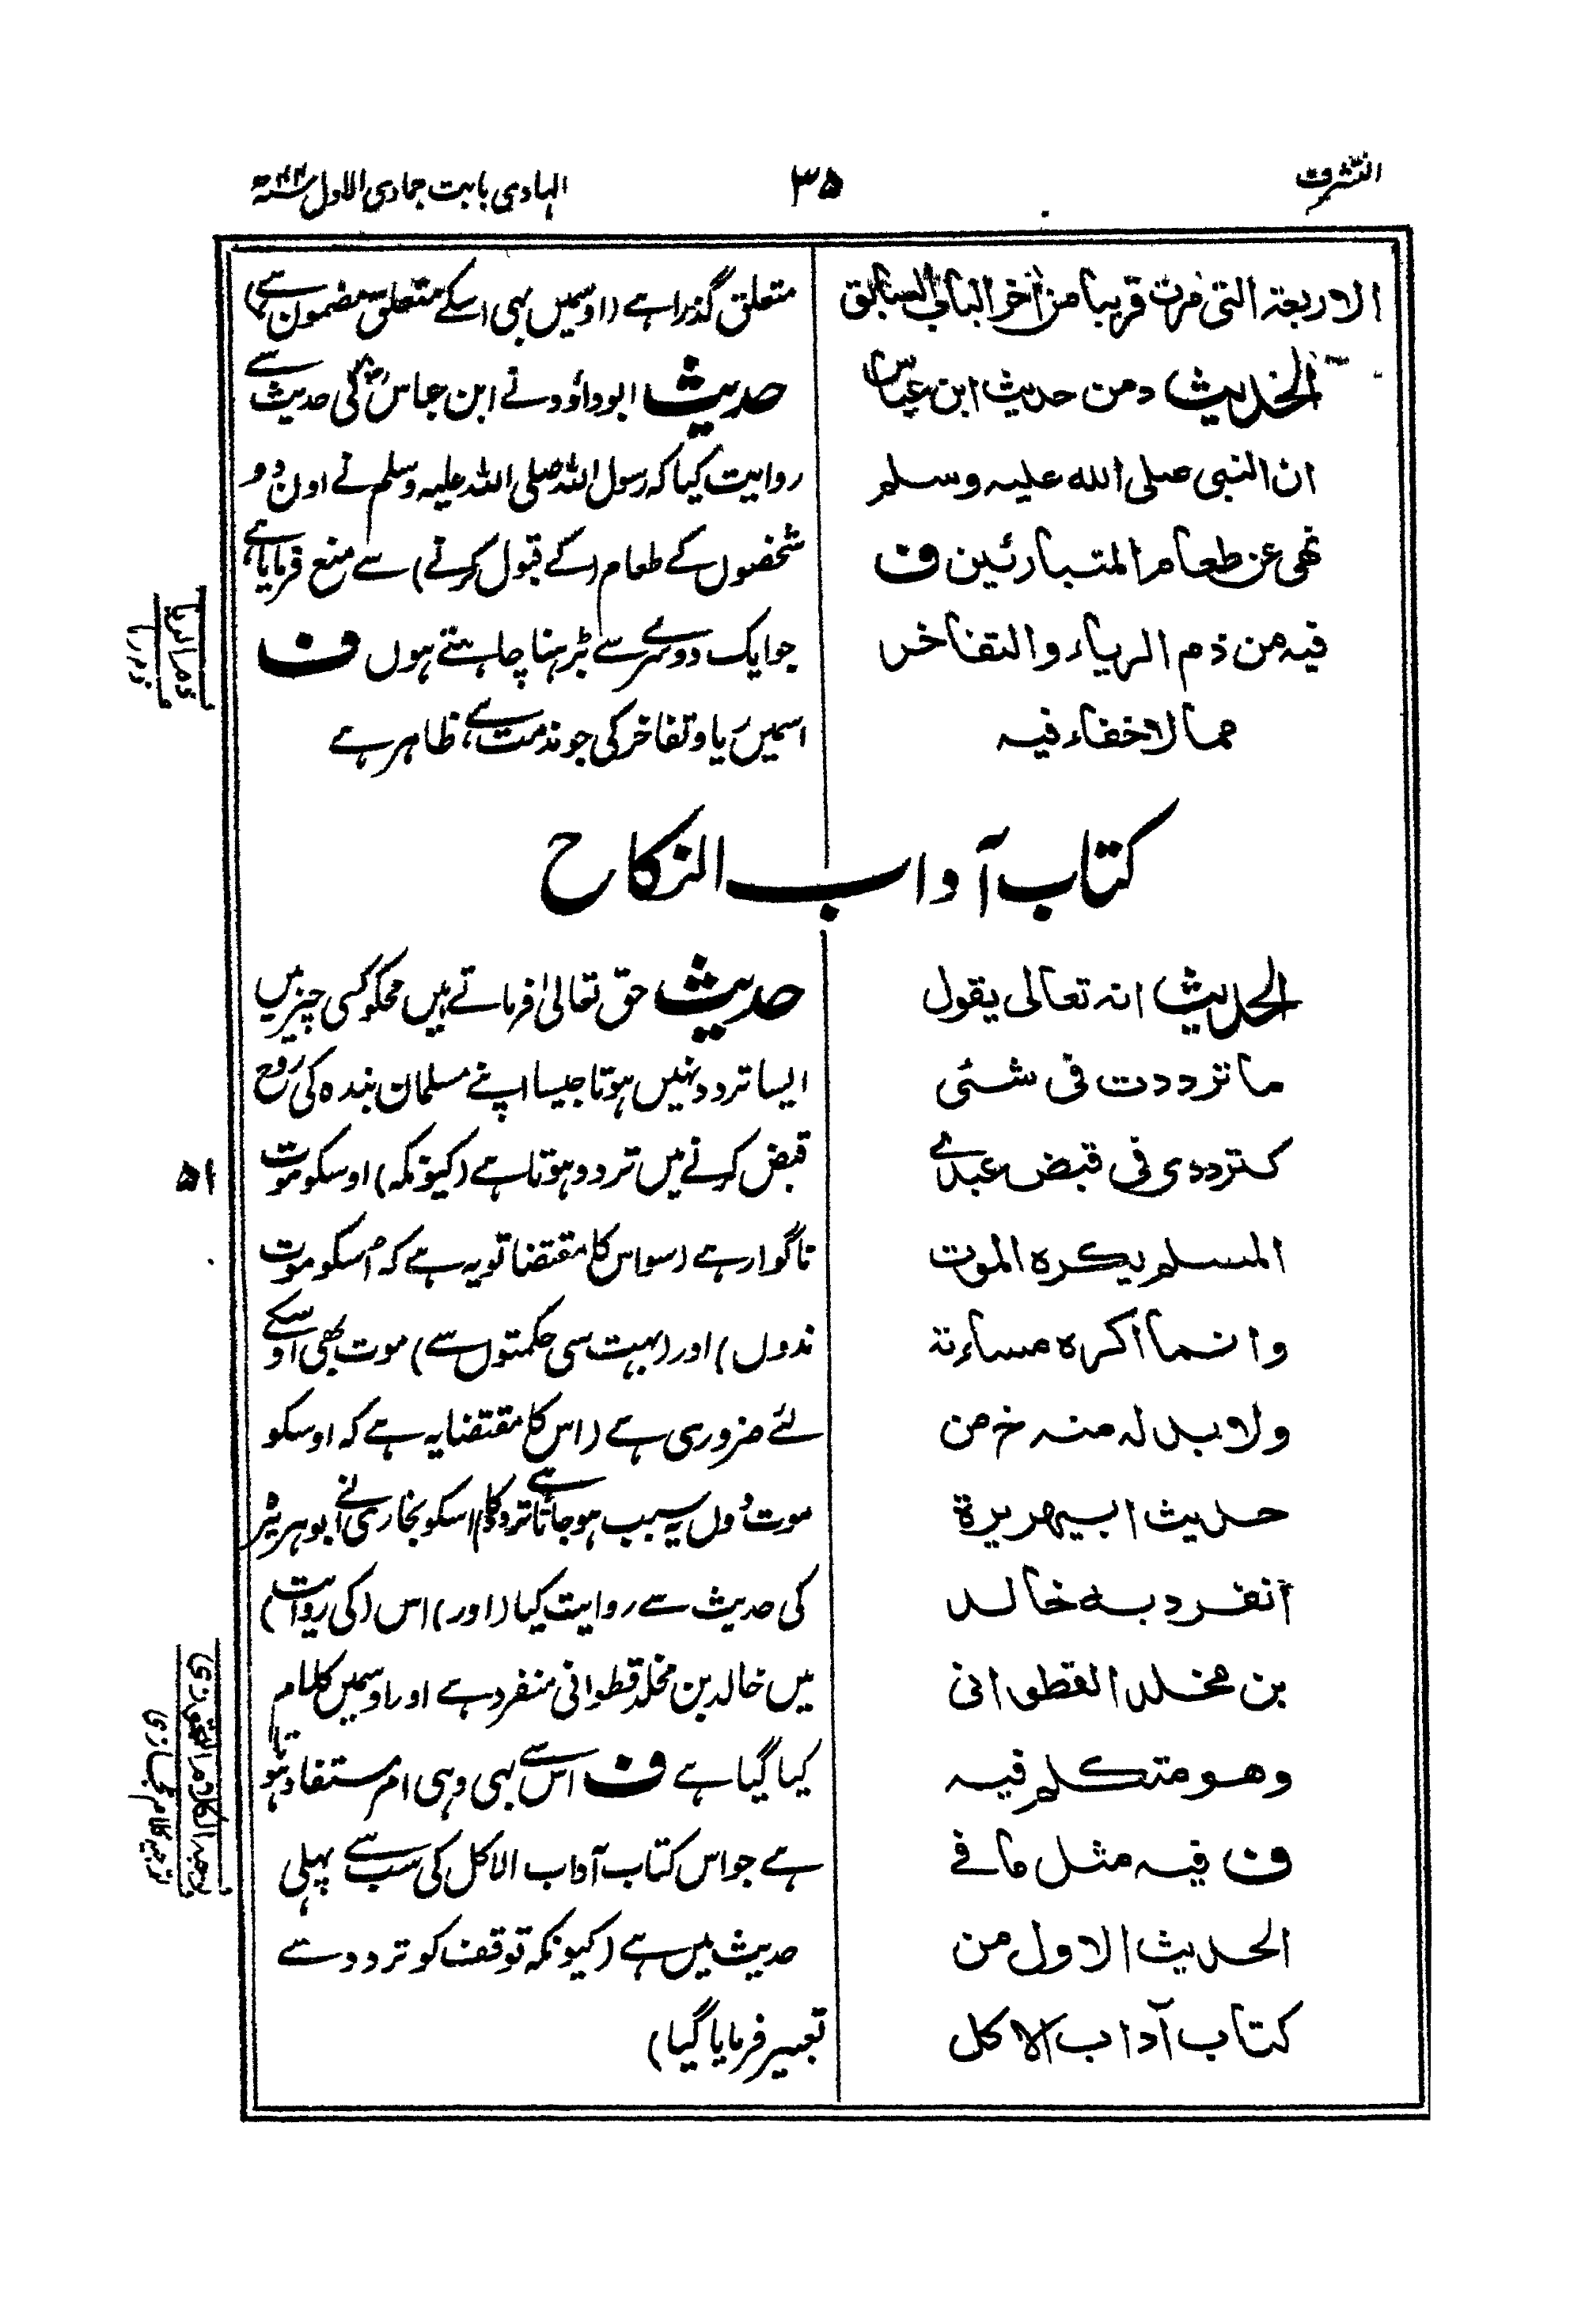 التشرف
۳۵
الہادی بابت جمادی الاول
الاربعۃ التی مرت قریبا من اٰخر الباب السابق
الحدیث د من حدیث ابن عباس
ان النبی صلی اللہ علیہ وسلم
نھی عن طعام المتبارئین ف
فیہ من ذم الریاء والتفاخر
مما لاخفاء فیہ
متعلق گذرا ہے (اوسمیں بہی اسکے متعلق مضمون ہے)
حدیث ابوداؤد نے ابن عباسؓ کی حدیث سے
روایت کیا کہ رسول اللہ صلی اللہ علیہ وسلم نے اون دو
شخصوں کے طعام (کے قبول کرنے) سے منع فرمایا ہے
جو ایک دوسرے سے بڑہنا چاہتے ہوں ف
اسمیں ریا و تفاخر کی جو مذمت ہے ظاہر ہے
کتاب آداب النکاح
الحدیث انہ تعالی یقول
ما ترددت فی شئی
کترددی فی قبض عبدے
المسلم یکرہ الموت
وانما اکرہ مساءتہ
ولابد لہ منہ خ من
حدیث ابیھریرۃ
انفرد بہ خالد
بن مخلد القطوانی
وھو متکلم فیہ
ف فیہ مثل مافے
الحدیث الاول من
کتاب آداب الاکل
حدیث حق تعالیٰ فرماتے ہیں مجکو کسی چیز میں
ایسا تردد نہیں ہوتا جیسا اپنے مسلمان بندہ کی روح
قبض کرنے میں تردد ہوتا ہے (کیونکہ) اوسکو موت
ناگوار ہے (سو اس کا مقتضا تو یہ ہے کہ اُسکو موت
ندوں) اور (بہت سی حکمتوں سے) موت بھی اوسکے
لئے ضروری ہے (اس کا مقتضا یہ ہے کہ اوسکو
موت دوں یہ سبب ہوجاتا ہے تردد کا) اسکو بخاری نے ابوہریرہ
کی حدیث سے روایت کیا (اور) اس (کی روایت)
میں خالد بن مخلد قطوانی منفرد ہے اور اوسمیں کلام
کیا گیا ہے ف اس سے بہی وہی امر مستفاد ہوتا
ہے جو اس کتاب آداب الاکل کی سب سے پہلی
حدیث میں ہے (کیونکہ توقف کو تردد سے
تعبیر فرمایا گیا)
ذم الریا
ذم ریا
۵۱